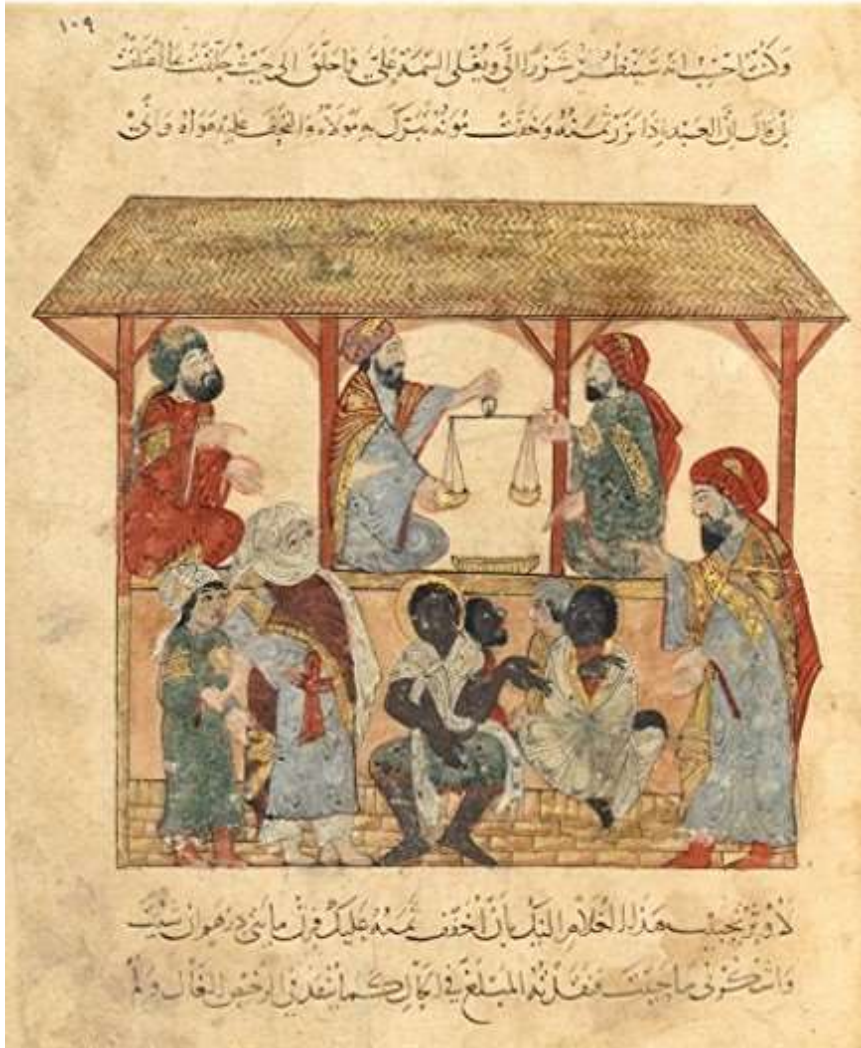 ١٠٩
وكنت احسب انه سينظر شزرا الي ويغلي السيمة علي فما حلق الى حيث حلقت
بل قال ان العبد اذا نزر ثمنه وخفت مونه تبرك به مولاه والتحف عليه هواه واني
لاوثر تحبيب هذا الغلام اليك بان اخفف ثمنه عليك فزن مائتي درهم ان شيت
واشكر لي ما حييت فنقدته المبلغ في الحال كما ينقد في الرخيص الغال ولم